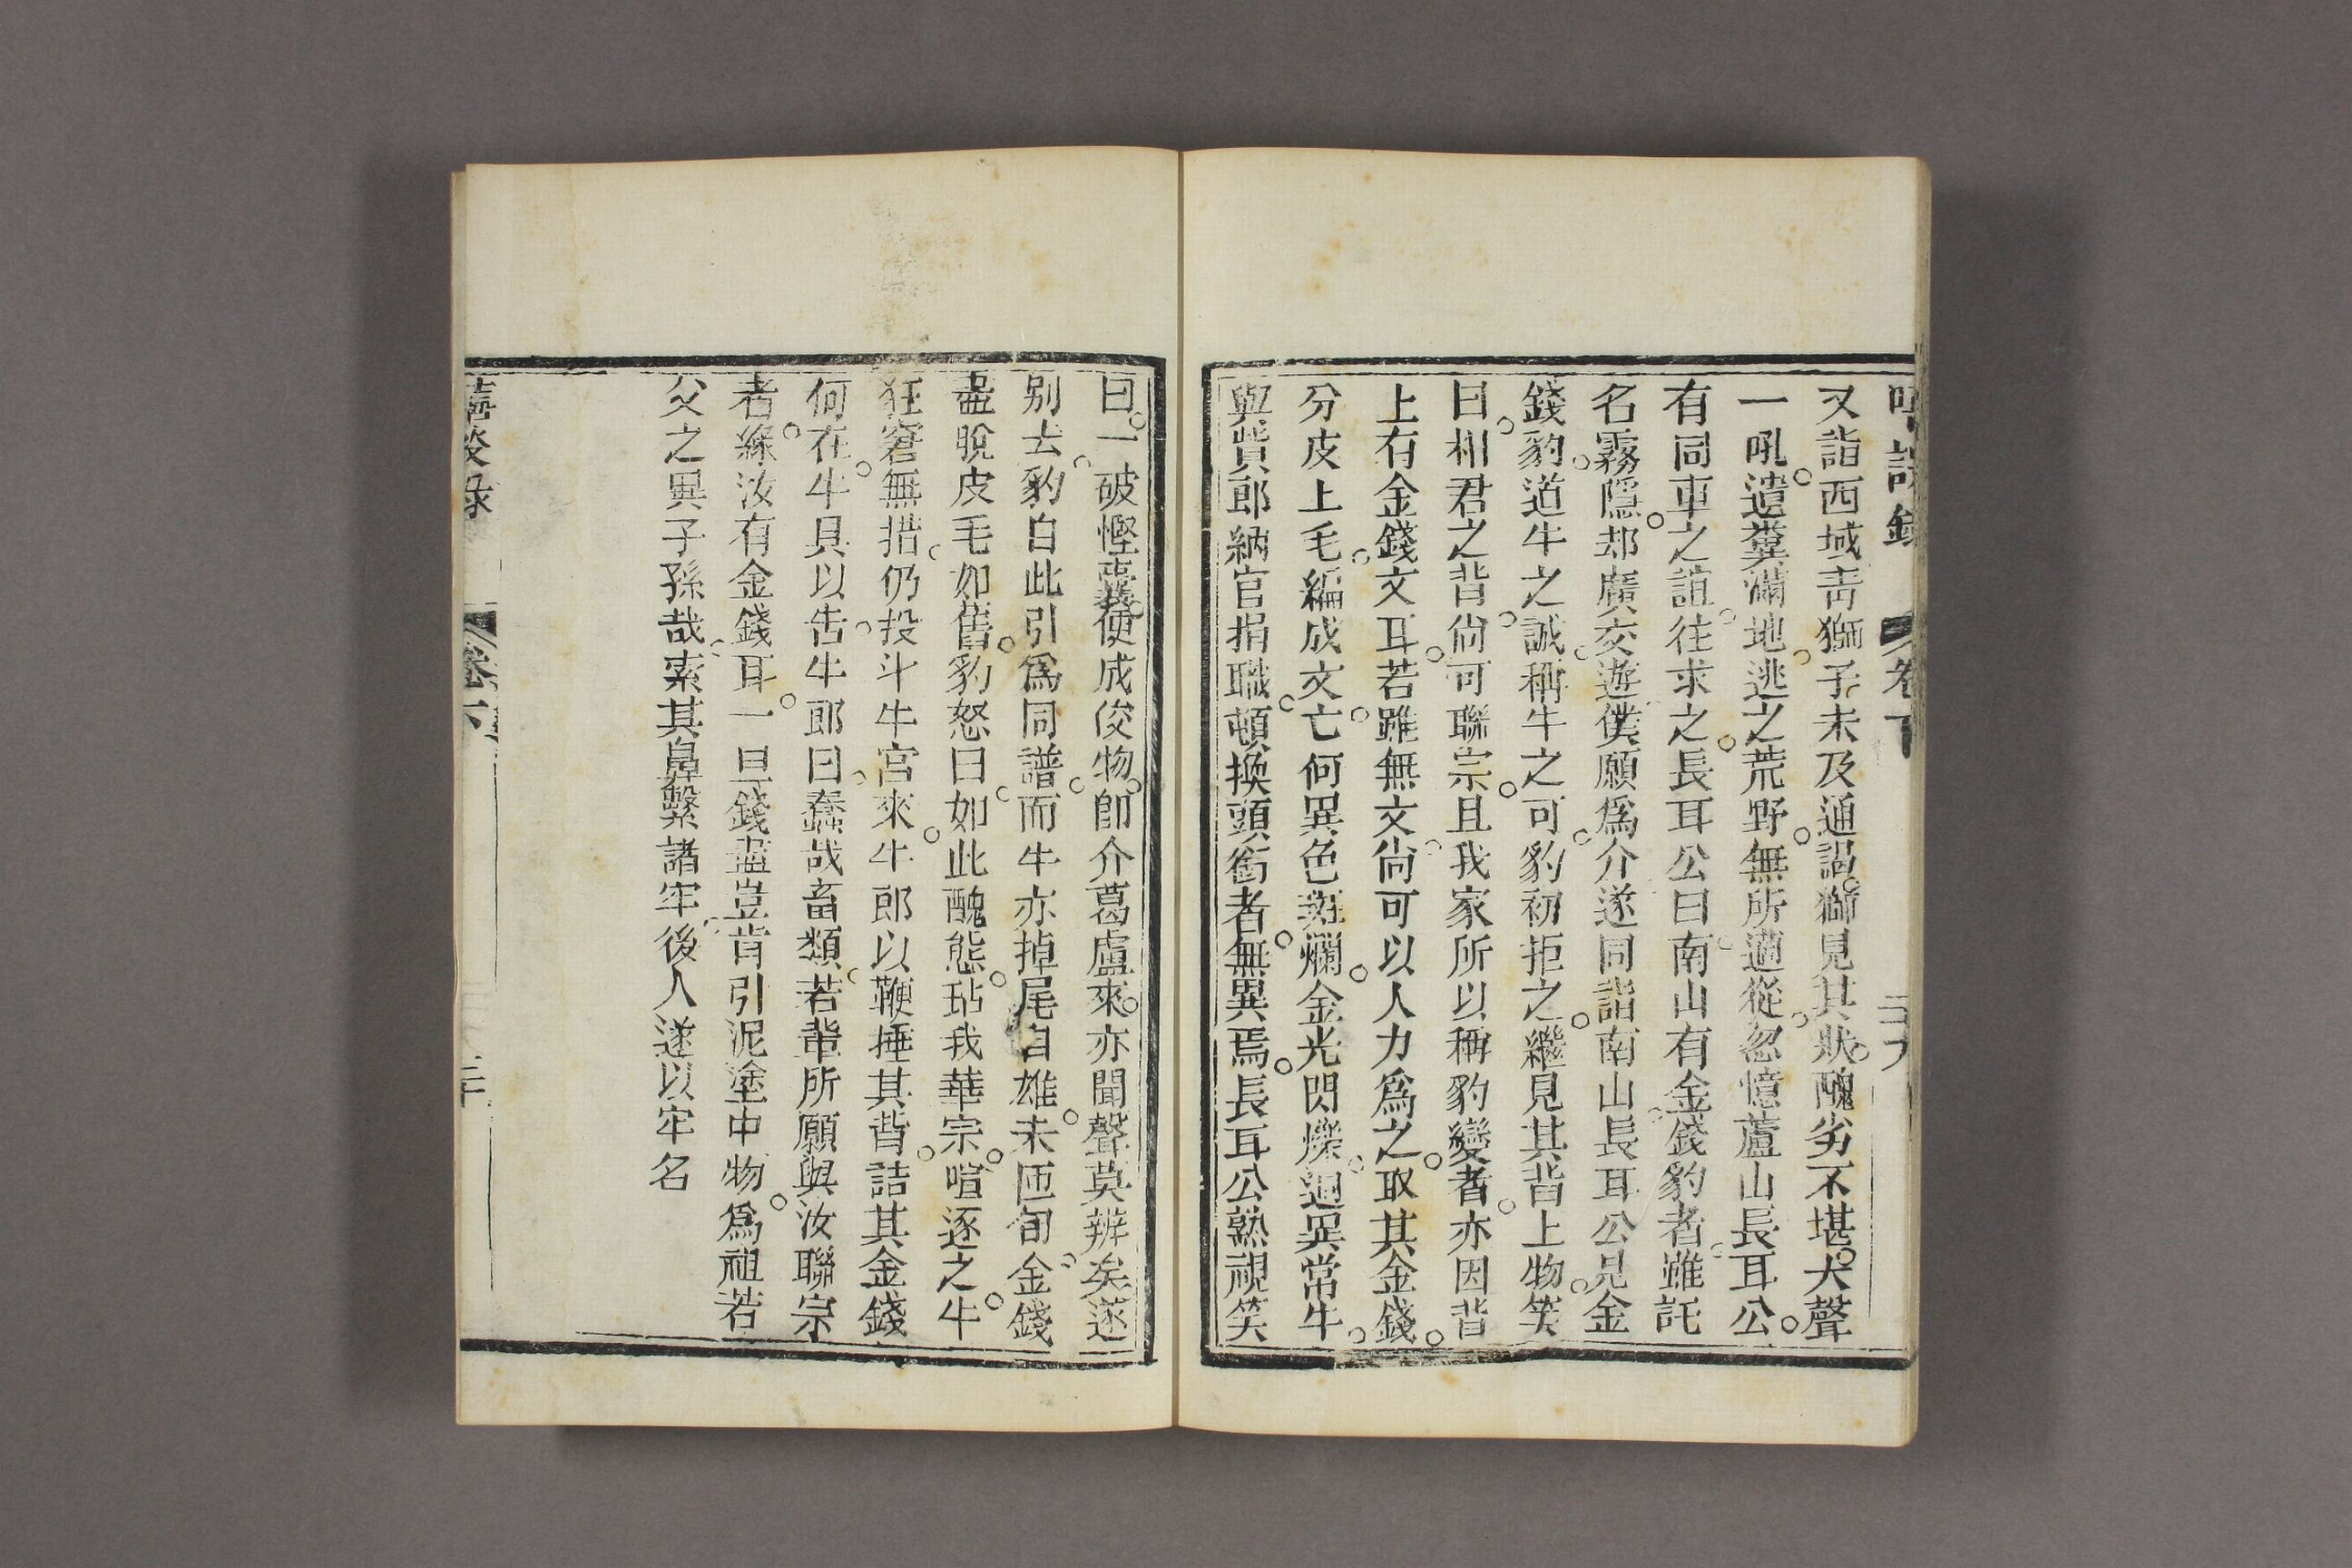 卷下
又詣西域青獅子未及通謁獅見其狀醜劣不堪大聲
一吼遺糞滿地逃之荒野無所適從忽憶蘆山長耳公
有同車之誼往求之長耳公曰南山有金錢豹者雖託
名霧隱却廣交遊僕願爲介遂同詣南山長耳公見金
錢豹道牛之誠稱牛之可豹初拒之繼見其背上物笑
曰相君之背尙可聯宗且我家所以稱豹變者亦因背
上有金錢文耳若雖無文尙可以人力爲之取其金錢
分皮上毛編成文亡何異色斑斕金光閃爍迥異常牛
與貲郎納官捐職頓換頭銜者無異焉長耳公熟視笑
曰一破慳囊便成俊物卽介葛盧來亦聞聲莫辨矣遂
别去豹自此引爲同譜而牛亦掉尾自雄未匝旬金錢
盡脫皮毛如舊豹怒曰如此醜態玷我華宗喧逐之牛
狂窘無措仍投斗牛宮來牛郎以鞭捶其背詰其金錢
何在牛具以吿牛郎曰蠢哉畜類若輩所願與汝聯宗
者緣汝有金錢耳一旦錢盡豈肯引泥塗中物爲祖若
父之異子孫哉索其鼻繫諸牢後人遂以牢名
卷下